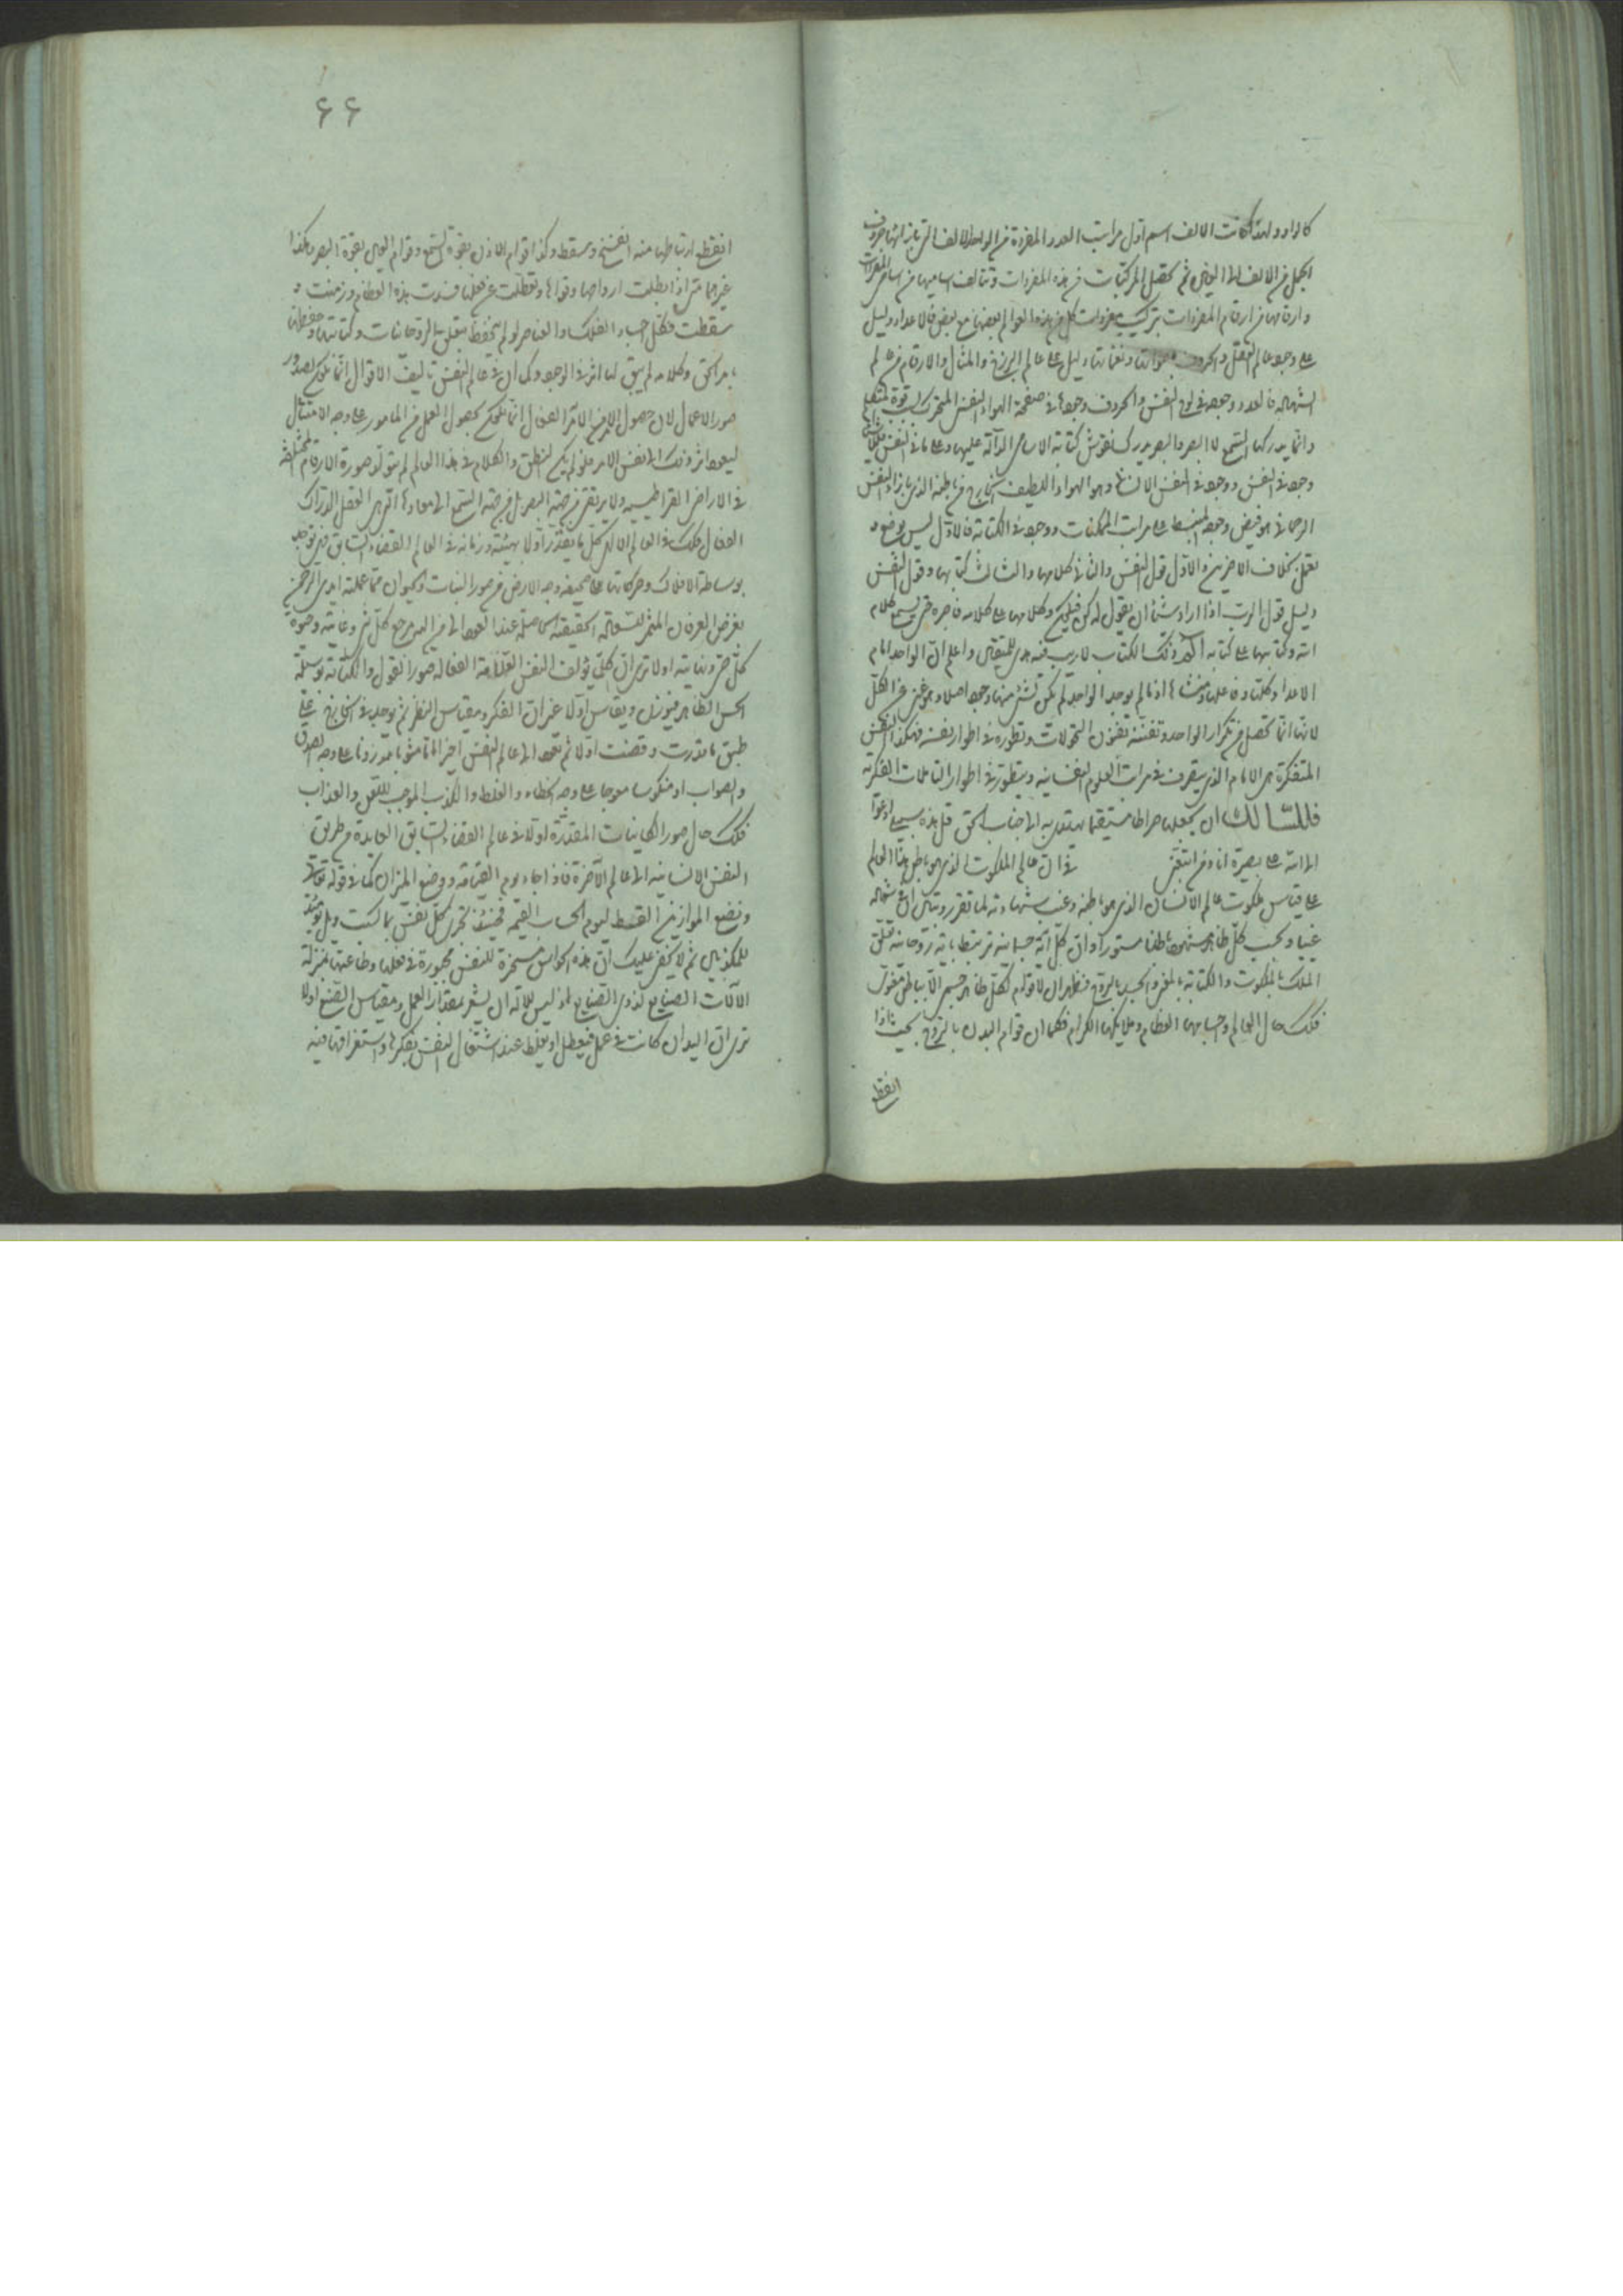 كالراو ولهذا كانت الالف اسم اول مراتب العدد المفردة من الواحد الالف التى بازائها حروف
الجمل من الالف الى الغين ثم تحصل المركبات من هذه المفردات وتتالف اساميها من اسامى المفردات
وارقامها من ارقام المفردات بتركيب مفردات كل من هذه العوالم بعضها مع بعض فالاعداد دليل
على وجود عالم العقل والحروف باصواتها ونغماتها دليل على عالم البرزخ والمثال والارقام من عالم
الشهادة فالعدد وجوده فى لوح النفس والحروف وجودها فى صفحة الهواء النفس المتحرك بقوة المتكلم
وانما يدركها السمع لا البصر والبصر يدرك نقوش كتابة الاسامى الدالة عليها وعلى ما فى النفس
وجود فى النفس ووجود فى النفس الانسانى وهو الهواء اللطيف الخارج من باطنه الذى بازاء النفس
الرحمانى هو فيض وجوده المنبسط على مراتب الممكنات ووجود فى الكتابة فالاول ليس بوضع و
تعمل بخلاف الاخيرين والاول قول النفس والثانى كلامها والثالث كتابها وقول النفس
دليل قول الرب اذا اراد شيئا ان يقول له كن فيكون وكلامها على كلامه فاجره حتى يسمع كلام
الله وكتابها على كتابه الم ذلك الكتاب لا ريب فيه هدى للمتقين واعلم ان الواحد امام
الاعداد كلها وفاعلها ومنشاها اذ ما لم يوجد الواحد لم يكن لشئ منها وجود اصلا وهو غنى عن الكل
لانها انما تحصل من تكرار الواحد وتفننه بفنون التحولات وتطوره فى اطوار نفسه فهكذا النفس
المتفكرة هى الامام الذى يتصرف فى مراتب العلوم النفسانية ويتطور فى اطوار التاملات الفكرية
فللسالك ان يجعلها صراطا مستقيما يهتدى به الى جناب الحق قل هذه سبيلى ادعوا
الى الله على بصيرة انا ومن اتبعنى فى ان عالم الملكوت الذى هو باطن هذا العالم
على قياس ملكوت عالم الانسان الذى هو باطنه وغيب شهادته لما تقرر وتبين ان مع شهادة
غيبا وبحسب كل ظاهر مشهود باطنا مستورا وان كل آية جسمانية مرتبطة باية روحانية تعلق
الملك بالملكوت والكتابة بالمعنى والجسد بالروح فظهر ان لا قوام لكل ظاهر جسم الا بباطن مقوم
فكذلك حال العالم واجسامها العظام وملائكتها الكرام فكما ان قوام البدن بالروح بحيث اذا
انقطع
۶۶
انقطع ارتباطها منه انفسخ وسقط وكذا قوام الاذن بقوة السمع وقوام العين بقوة البصر وهكذا
غيرهما حتى اذا بطلت ارواحها وقواها وتعطلت عن فعلها فسدت هذه العظام وزمنت و
سقطت فكذلك اجساد الفلك والعناصر لو لم يتحفظ بتعلق الروحانيات وكتابتها وحفظها
بامر الحق وكلامه لم يبق لها اثر فى الوجود وكما ان فى عالم النفس تاليف الاقوال انما يكون لصدور
صور الاعمال لان حصول الامر من الآمر الفعال انما يكون لحصول العمل من المامور على وجه الامتثال
ليعود اثر ذلك الى نفس الامر فلو لم يكن النطق والكلام فى هذا العالم لم يتولد صورة الارقام المختلفة
فى الاراضى القراطيسية ولا يرتقى من جهة البصر بل من جهة السمع الى معادها التى هى العقل الدراك
الفعال فكذلك فى العالم الاكبر كل ما يقدر اولا بهيئته وزمانه فى العالم القضاء السابق حين توجد
بوساطة الافلاك وحركاتها على صحيفة وجه الارض من صور النبات والحيوان مما عملته ايدى الرحمن
بغرض العرفان المثمر للسعادة الحقيقية الحاصلة عند العود الى من اليه مرجع كل شئ وغايته وصورة
كل شئ ونهايته اولا ترى ان كلى يؤلف النفس العلامة الفعالة صور القول والكتابة بوسيلة
الحس الظاهر فيوزن ويقاس اولا بميزان الفكر ومقياس النظر ثم يوجد فى الخارج على
طبق ما قدرت وقضت اولا ثم تعود الى عالم النفس اخيرا اما مثوبا ممدوحا على وجه الصدق
والصواب او منكوسا معوجا على وجه الخطاء والغلط والكذب الموجب للثقل والعذاب
فكذلك حال صور الكاينات المقدرة اولا فى عالم القضاء السابق العايدة من طريق
النفس الانسانية الى عالم الآخرة فاذا جاء يوم القيامة ووضع الميزان كما فى قوله تعالى
ونضع الموازين القسط ليوم الحساب القيمة فحينئذ تجزى كل نفس بما كسبت وويل يومئذ
للمكذبين ثم لا يخفى عليك ان هذه الحواس مسخرة للنفس مجبورة فى فعلها وطاعتها بمنزلة
الآلات الصنايع لذوى الصنايع اذ ليس للالة ان يشعر بمقدار العمل ومقياس الصنع اولا
ترى ان اليد ان كانت فى عمل فيعطل او يغلط عند اشتغال النفس بفكرها واستغراقها فيه